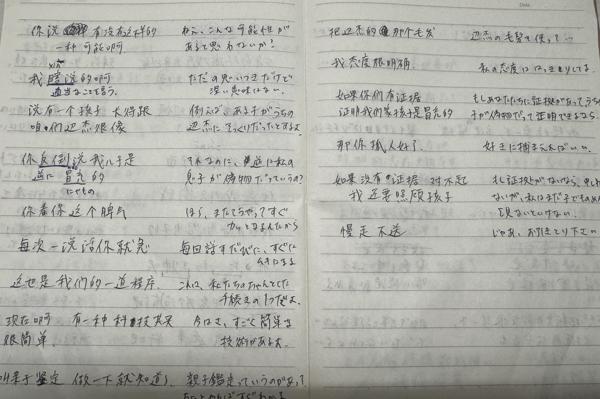 你说 有没有这样的
一种可能啊
ねえ、こんな可能性が
あると思わないか?
我瞎说的啊
適当なことを言う。
ただの思いつきだけど
深い意味はない。
说有一个孩子 长得跟
咱们边杰很像
例えば ある子がうちの
辺杰にそっくりだったとするよ
你反倒说我儿子是
逆に 冒充的
にせもの
それなのに、逆に私の
息子が偽物だっていうの?
你看你这个脾气
ほら、またでちゃう?すぐ
カッとなるんだから
每次一说话你就急
毎回話すだけで、すぐに
ムキになる
这也是我们的一道程序
これは、私たちのちゃんとした
手続きの1つだよ。
现在啊 有一种科技其实
很简单
今はさ、すごく簡単な
技術があるよ。
亲子鉴定 做一下就知道了
親子鑑定っていうのがあって
把边杰的那个毛发
辺杰の毛髪を使って…
我态度很明确
私の態度ははっきりしてる。
如果你们有证据
证明我们家孩子是冒充的
もしあなたたちに証拠があってうちの
子が偽物だって証明できるなら、
那你抓人好了
好きに捕まえればいい。
如果没有证据 对不起
我还要照顾孩子
ないが、私はまだ子どもの
見ないといけない。
慢走不送
じゃあ、お引きとり下さい